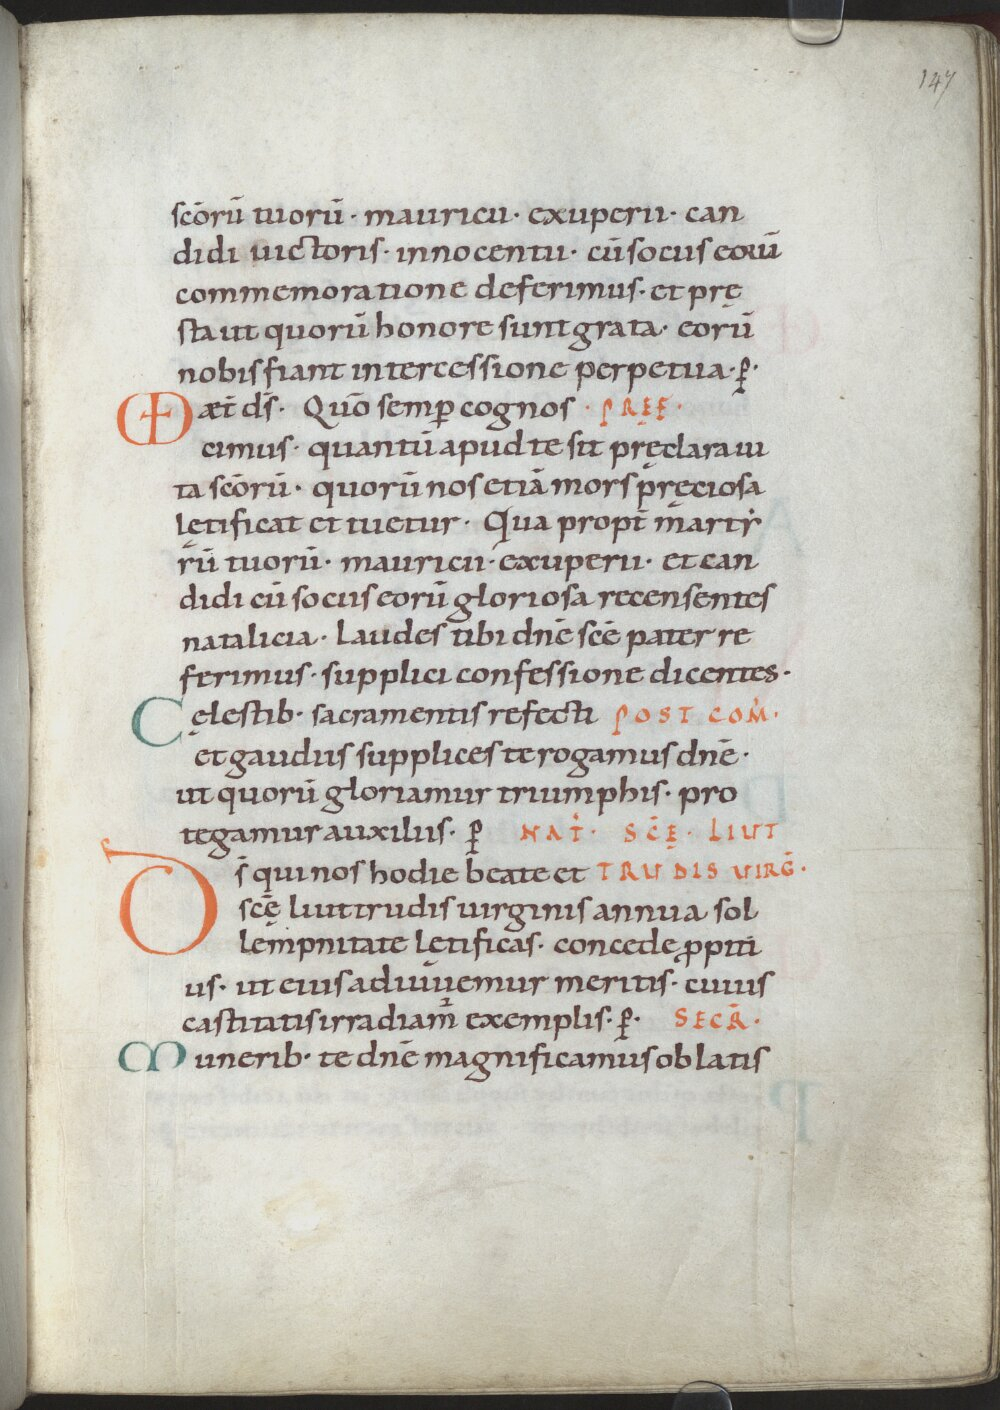 147
scōrū tuorū · mauricii · exuperii · can
didi uictoris · innocentii · cū sociis eorū
commemoratione deferimus · et prę
sta ut quorū honore sunt grata · eorū
nobis fiant intercessione perpetua · p̄ ·
æt̄ ds̄ · Quō semp̄ cognos · PREF ·
cimus · quantū apud te sit pręclara ui
ta scōrū · quorū nos etiā mors pręciosa
lętificat et tuetur · Qua propt̄ martẏ
rū tuorū · mauricii · exuperii · et can
didi cū sociis eorū gloriosa recensentes
natalicia · laudes tibi dnē scē pater re
ferimus · supplici confessione dicentes ·
Cęlestib · sacramentis refecti POST COM̄ ·
et gaudiis supplices te rogamus dnē ·
ut quorū gloriamur triumphis · pro
tegamur auxiliis · p̄ NAT̄ · SC̄Ę · LIUT
Ds̄ qui nos hodie beate et TRUDIS UIRḠ ·
scę̄ liuttrudis uirginis annua sol
lempnitate lętificas · concede ꝓpiti
us · ut eius adiuuemur meritis · cuius
castitatis irradiam̄ exemplis · p̄ · SECR̄ ·
Munerib · te dnē magnificamus oblatis